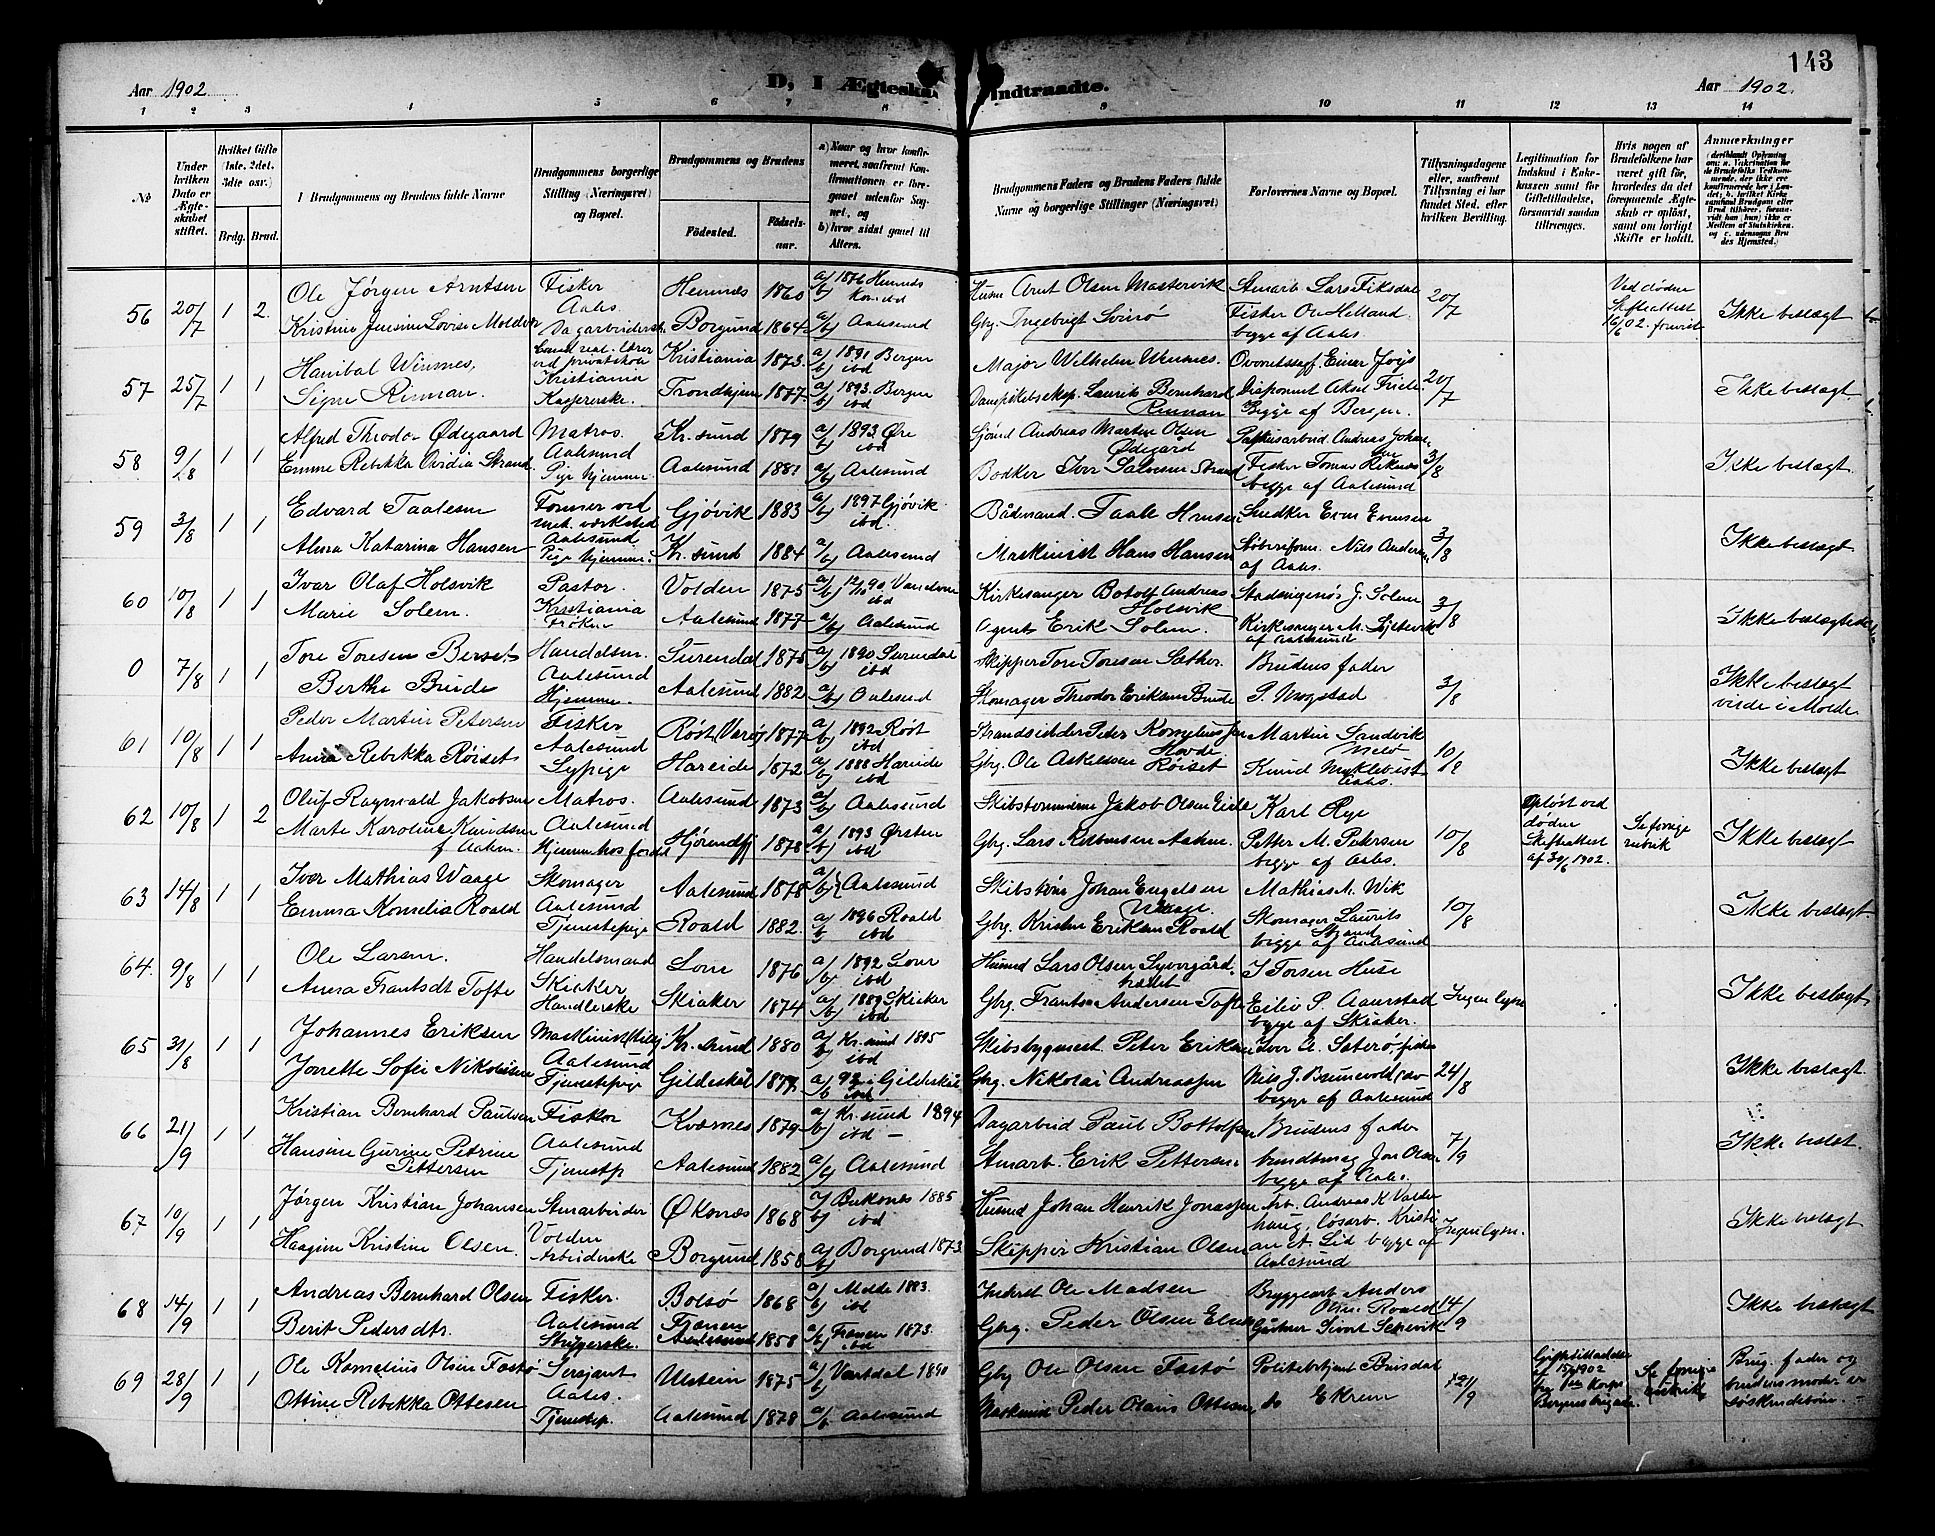 143
Aar 1902
D, I Ægteska
Indtraadte.
Aar 1902.
1 2 3 4 5 6 7 8 9 10 11 12 13 14
No
Under hvilken Dato er Ægteskabet stiftet.
Hvilket Gifte (1ste, 2det, 3die osv.)
Brdg. Brud.
Brudgommens og Brudens fulde Navne
Brudgommens borgerlige Stilling (Næringsvei) og Bopæl.
Brudgommens og Brudens
Fødested.
Fødselsaar.
a) Naar og hvor konfirmeret, saafremt Konfirmationen er foregaaet udenfor Sognet, og
b) hvor sidst gaaet til Alters.
Brudgommens Faders og Brudens Faders fulde Navne og borgerlige Stillinger (Næringsvei)
Forlovernes Navne og Bopæl.
Tillysningsdagene eller, saafremt Tillysning ei har fundet Sted, efter hvilken Bevilling.
Legitimation for Indskud i Enkekassen samt for Giftetilladelse, forsaavidt saadan tiltrænges.
Hvis nogen af Brudefolkene har været gift før, hvorledes da det foregaaende Ægteskab er opløst, samt om lovligt Skifte er holdt.
Anmærkninger
56 20/7 1 2. Ole Jørgen Arntsen Fisker Aales. Hemnes 1860 a/ 1876 Hemnes b/
Arnt Olsen Mastervik Lars Fiksdal 20/7 Ved døden Skifteattest 16/6 02. Ikke beslægt
Kristine Jensine Lovise Borgund 1864 a/b/ Aalesund
Gbg. Ingebrigt Svinø Fisker Ole Helland begge af Aales.
57 25/7 1 1 Hanibal Winsnes, Kristiania Kristiania 1873. a/ 1891 Bergen b/ ibd
Major Wilhelm Winsnes. 20/7 Ikke beslægt
Signe Rinnan. Trondhjem 1877 a/ 1893. Bergen b/ ibd
Laurits Bernhard Rinnan Begge af Bergen.
58 9/28 1 1 Alfred Ødegaard Matros. Aalesund Kr.sund 1879 a/ 1893 Øre b/ ibd
Andreas Martin Olsen Ødegård Andreas Johan 3/8 Ikke beslægt
Emma Rebekka Ovidia Strand Pige hjemme Aalesund 1881 a/b/ Aalesund
Bødker Iver Strand Fisker begge af Aalesund
59 3/8 1 1 Edvard Taalesen Former ved mek. værksted Aalesund Gjøvik 1883 a/ 1897 Gjøvik b/ ibd.
Bådmand. Taale Hansen Snedker 3/8 Ikke beslægt
Alma Katarina Hansen Pige hjemme. Kr. sund 1884 a/b/ Aalesund
Maskinist Hans Hansen Nils Andersen af Aales.
60 10/8 1 1 Ivar Olaf Holsvik Pastor. Kristiania Volden 1875 90 ibd
Kirkesanger Botolf Andreas Holsvik J. Solem 3/8 Ikke beslægtede
Marie Solem. Frøken Aalesund 1877 a/b/ Aalesund
Agent Erik Solem. Kirkesanger M. af Aalesund
0 7/8 1 1 Tore Toresen Berset Handelsm. Aalesund Surendal 1875 a/ 1890 Surendal b/ ibd
Skipper Tore Toresen Sæther. Brudens fader 3/8 Ikke beslægt viede i Molde
Berthe Brude Hjemme. Aalesund 1882 a/b/ Aalesund
Skomager Theodor Eriksen Brude P. Mogstad
61 10/8 1 1 Peder Martin Petersen Fisker Aalesund Røst (Værøy) 1877 a/ 1892 Røst b/ ibd
Strandsidder Peder Kornelius Hovde Martin Sandvik 10/8 Ikke beslægt
Anna Rebekka Røiset Sypige Hareide 1872 a/ 1888 Hareide b/ ibd
Gbg. Ole Askelsen Røiset Knud Myklebust Aales.
62 10/8 1 2 Oluf Ragnvald Jakobsen Matros. Aalesund Aalesund 1873 a/b/ Aalesund
Jakob Olsen Karl Rye 10/8 Opløst ved døden Skifteattest af 30/6 1902. Se forrige rubrik Ikke beslægt
Marte Karoline Knudsen Hjemme hos foræl Hjørundfj 1878 a/ 1893 Ørsten b/ ibd
Gbg. Lars Petter M. Petersen begge af Aales.
63 14/8 1 1 Iver Mathias Waage Skomager Aalesund Aalesund 1878 a/b/ Aalesund
Johan Engelsen Waage. Mathias M. Wik 10/8 Ikke beslægt
Emma Kornelia Roald Tjenestepige Roald 1882. a/ 1896 Roald b/ ibd
Gbg. Kristen Eriksen Roald Skomager Laurits Strand begge af Aalesund
64. 9/8 1 1 Ole Larsen. Handelsmand Skiaker Lom 1876 a/ 1892 Lom b/ ibd
Husmd Lars Olsen I Torsen Huse Ingen lysn Ikke beslægt
Anna Frantsdt Tofte Handlerske Skiaker 1874 a/ 1889 Skiaker b/ ibd
Gbg. Frants Andersen Tofte Eiliv P. Aanstad begge af Skiaker.
65 31/8 1 1 Johannes Eriksen Maskinist Aalesund Kr. sund 1880 a/ Kr. sund 1895 b/ ibd
Skibsbygmest. Peter Eriksen Iver A. Sæterø, fisker 24/8 Ikke beslægt.
Jonette Sofie Nikolaisen Tjenestepige Gildeskål 1877. a/ Gildeskål b/ ibd
Gbg. Nikolai Andreassen Nils J. Brunvold, do begge af Aalesund
66 21/9 1 1 Kristian Bernhard Paulsen Fisker Aalesund Kvernes 1879 a/ Kr. sund 1894 b/ ibd
Dagarbeid Paul Bottolfsen Brudens fader 7/9 Ikke beslæt.
Hansine Gurine Petrine Pettersen Tjenestp Aalesund 1882 a/b/ Aalesund
Stenarb. Erik Pettersen. Jon Olsen begge af Aales.
67 10/9 1 1 Jørgen Kristian Johansen Stenarbeider Volden Øksnes 1868 a/ 1885 b/ ibd
Husmd Johan Henrik Jonassen Arb. Andreas K. Valderhaug, løsarb. Kristian A. Lid begge af Aalesund Ingen lysn. Ikke beslægt
Haagine Kristine Olsen. Arbeiderske Borgund 1858 a/b/ Borgund 1873.
Skipper Kristian Olsen
68 14/9 1 1 Andreas Bernhard Olsen Fisker. Aalesund Bolsø 1868 a/ Molde 1883. b/ ibd
Inderst Ole Madsen Bryggearb Anders Olsen Roald 14/9 Ikke beslægt
Berit Pedersdtr. Strygerske. Frænen Aalesund 1858 a/ Frænen 1873. b/ ibd
Gbg. Peder Olsen Gartner Sivert
69 28/9 1 1 Ole Kornelius Olsen Fastø Sersjant Aales. Ulstein 1875 a/ Vartdal 1890 b/
Gbg Ole Olsen Fastø Politibetjent Brusdal 21/9 Giftetilladelse af 15/9 1902 fra Bergens brigade. Se forrige rubrik Brug. fader og brudens moder er søskendebørn.
Ottine Rebekka Ottesen Tjenestep. Aalesund 1878 a/b/ Aalesund
Maskinist Peder Olaus Ottesen do Ekrem